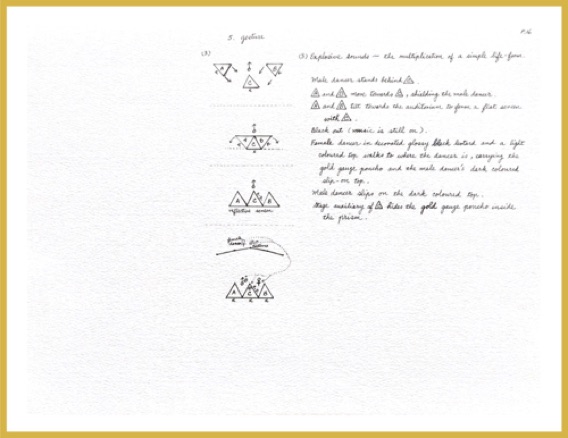 P.16
5. gesture
(5)
(5) Explosive sounds — the multiplication of a simple life-form.
A
B
C
Male dancer stands behind C.
A and B move towards C, shielding the male dancer.
A and B tilt towards the auditorium to form a flat screen
with C.
Black out (music is still on).
Female dancer in decorated glossy black leotard and a light
coloured top walks to where the dancer is, carrying the
gold gauge poncho and the male dancer's dark coloured
slip-on top.
Male dancer slips on the dark coloured top.
Stage auxiliary of C hides the gold gauge poncho inside
the prism.
A C B
reflective screen
A C B